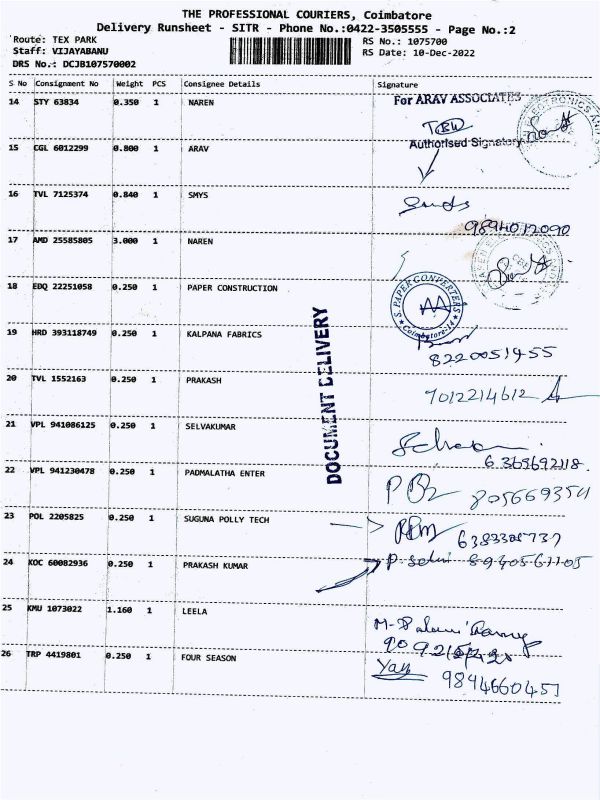 THE PROFESSIONAL COURIERS, Coimbatore
Delivery Runsheet - SITR - Phone No.:0422-3505555 - Page No.:2
Route: TEX PARK
RS No.: 1075700
Staff: VIJAYABANU
RS Date: 10-Dec-2022
DRS No.: DCJB107570002
S No Consignment No Weight PCS Consignee Details Signature
14 STY 63834 0.350 1 NAREN For ARAV ASSOCIATES
Authorised Signatory
15 CGL 6012299 0.800 1 ARAV
16 TVL 7125374 0.840 1 SMYS
9894012090
17 AMD 25585805 3.000 1 NAREN
18 EDQ 22251058 0.250 1 PAPER CONSTRUCTION
S. PAPER CONPERTERS
Coimbatore-14
19 HRD 393118749 0.250 1 KALPANA FABRICS
8220051455
DOCUMENT DELIVERY
20 TVL 1552163 0.250 1 PRAKASH 7012214612
21 VPL 941086125 0.250 1 SELVAKUMAR
6365692118
22 VPL 941230478 0.250 1 PADMALATHA ENTER
23 POL 2205825 0.250 1 SUGUNA POLLY TECH
24 KOC 60082936 0.250 1 PRAKASH KUMAR
25 KMU 1073022 1.160 1 LEELA
26 TRP 4419801 0.250 1 FOUR SEASON
9894660451